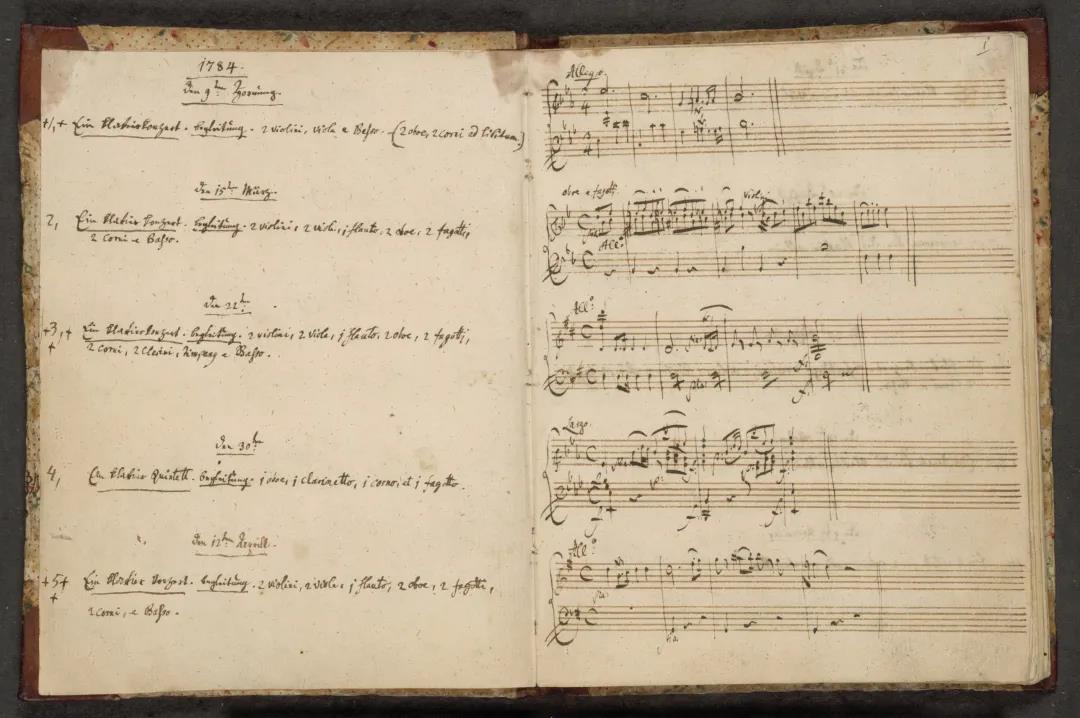 1784.
Den 9:ten Hornung.
+1,+ Ein klavierkonzert. begleitung. 2 violini, viola e Baßo. (2 oboe, 2 corni ad libitum.)
Den 15:ten März.
2, Ein klavier konzert. begleitung. 2 violini, 2 viole, 1 flauto, 2 oboe, 2 fagotti,
2 Corni e Baßo.
Den 22:ten
+3,+ Ein klavierkonzert. begleitung. 2 violini, 2 viole, 1 flauto, 2 oboe, 2 fagotti,
+ 2 corni, 2 clarini, timpany e Baßo.
Den 30:ten
4, Ein klavier Quintett. begleitung. 1 oboe, 1 clarinetto, 1 corno, et 1 fagotto.
Den 12:ten April.
+5+ Ein klavier konzert. begleitung. 2 violini, 2 viole, 1 flauto, 2 oboe, 2 fagotti,
+ 2 corni, e Baßo.
1
Allegro.
3 4
3 4
oboe e fagotti violini
All:o
All:o
Largo.
All:o